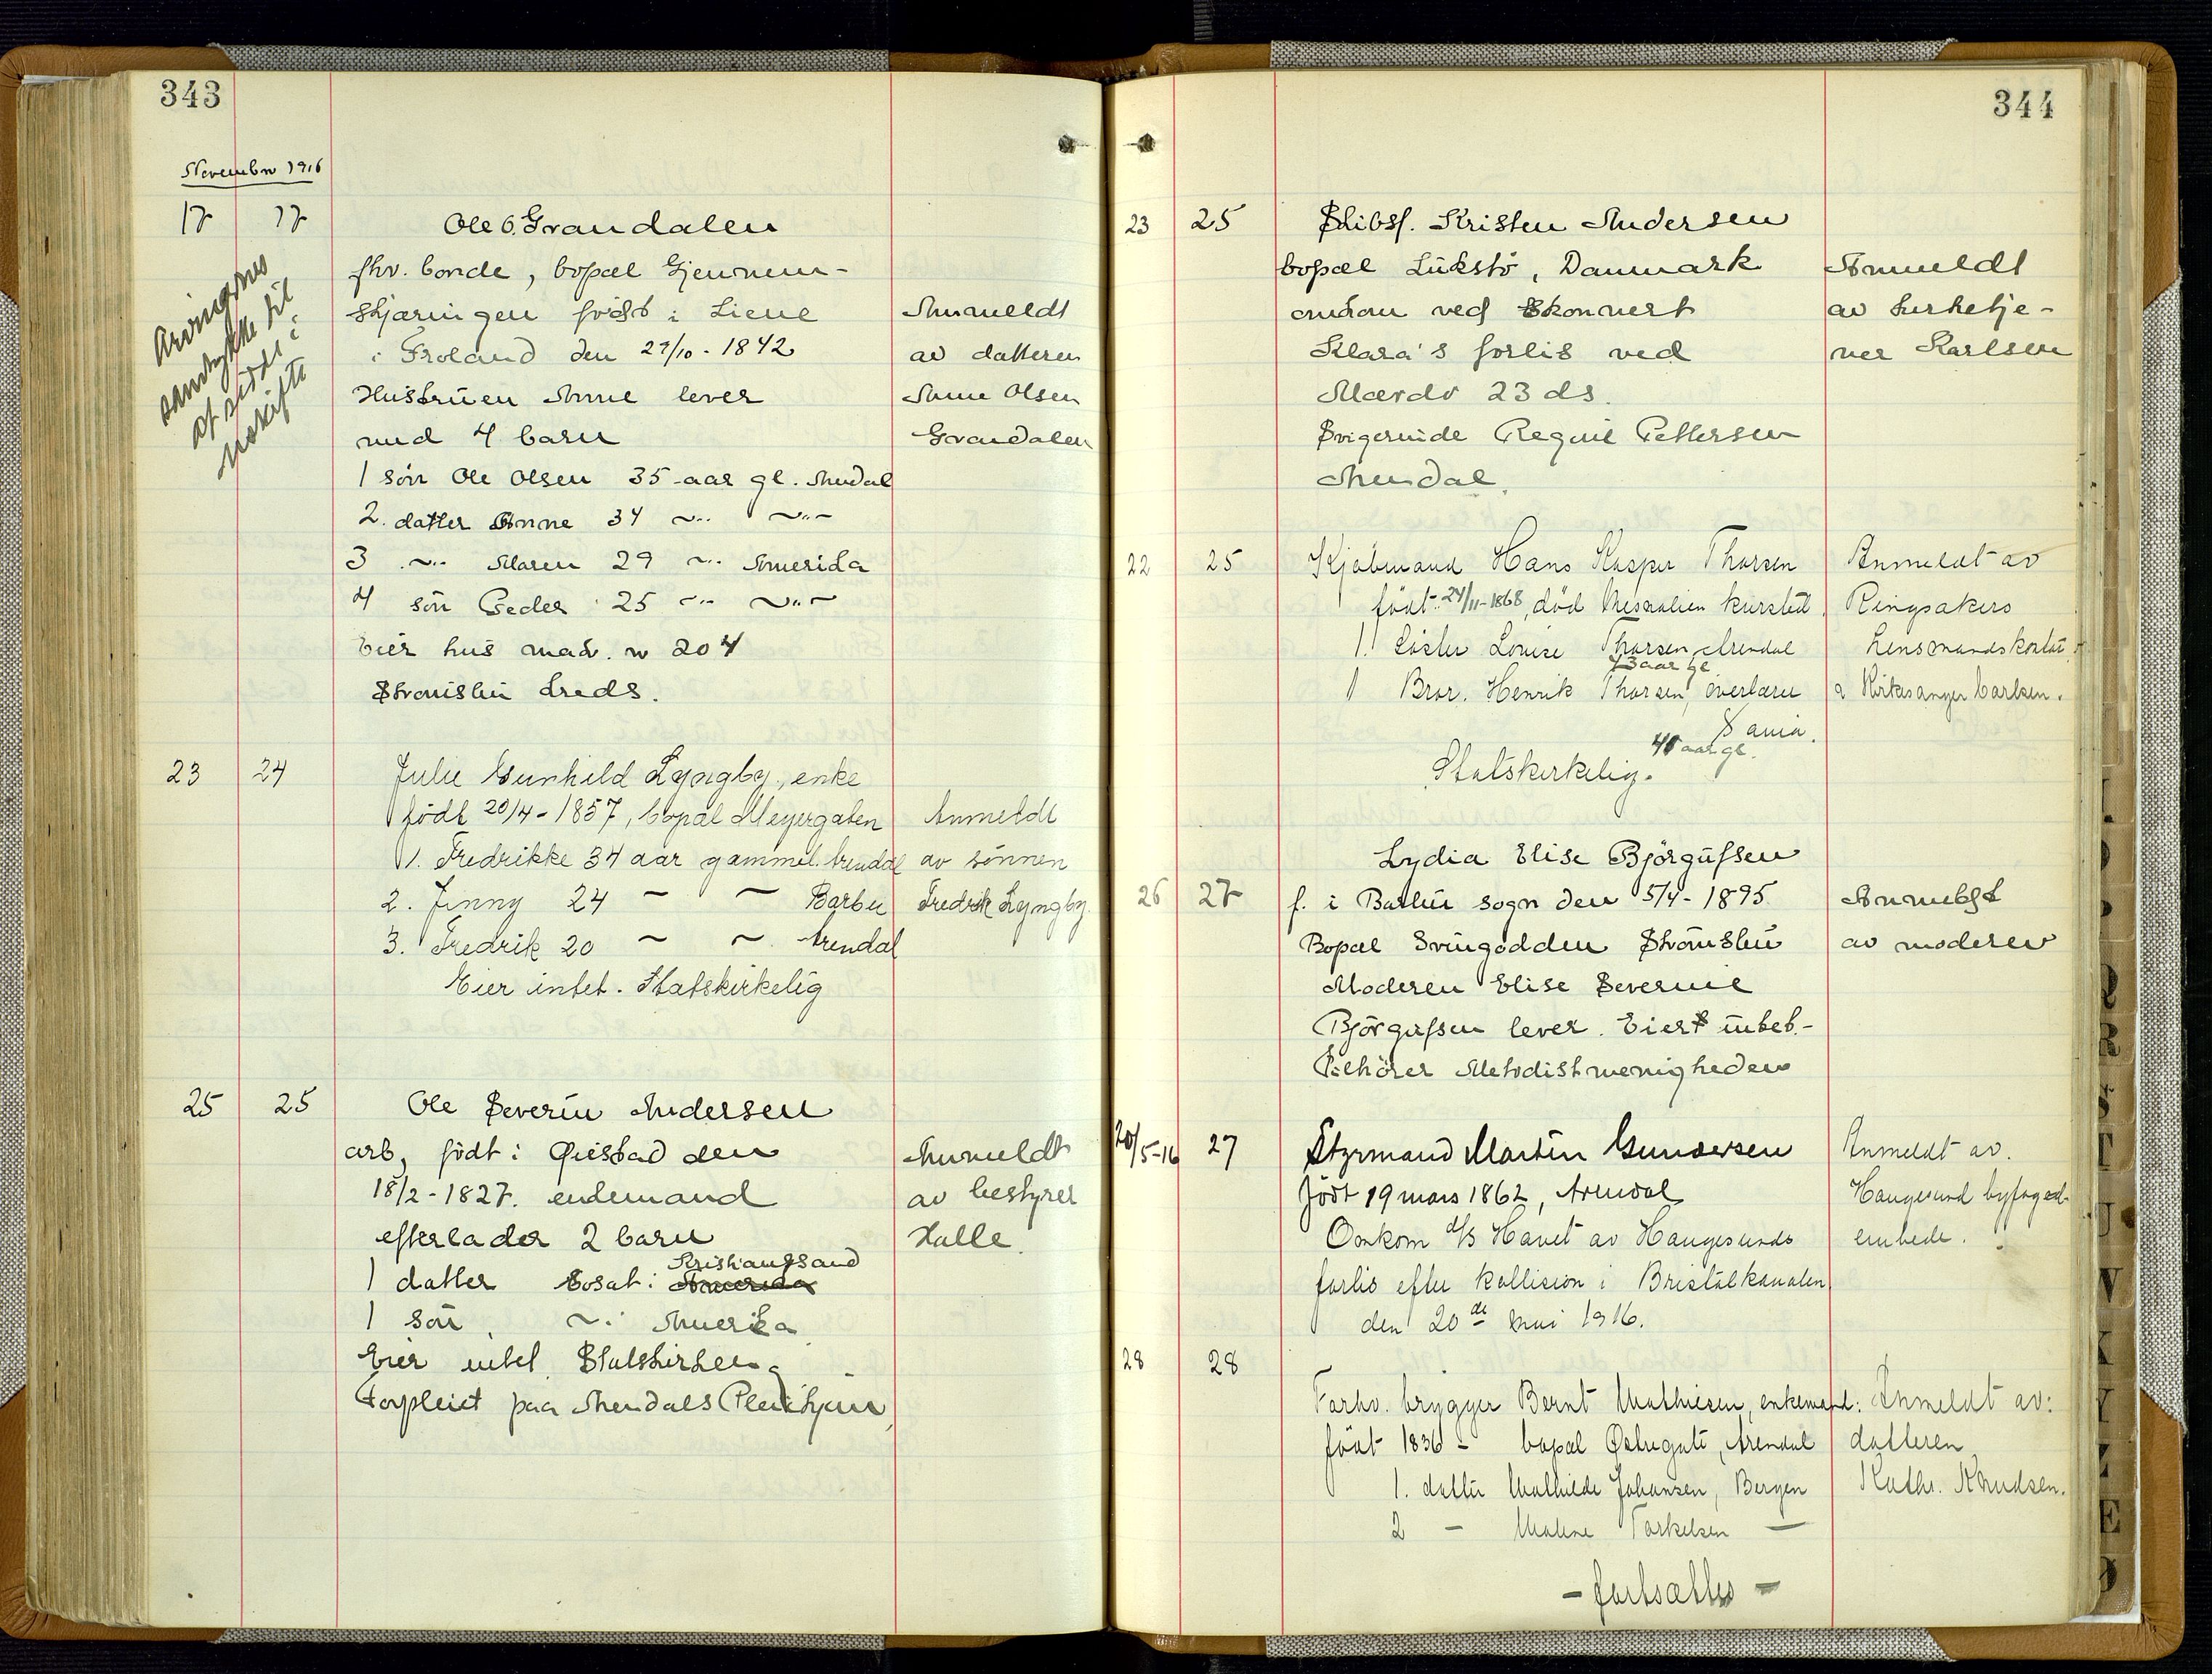 343
November 1916
17 17 Ole O. Grandalen
fhv. bonde, bopæl Gjennem-
skjæringen født i Liene Anmeldt
i Froland den 27/10-1842 av datteren
Hustruen Anne lever Anne Olsen
med 4 barn Grandalen
1 sön Ole Olsen 35 aar gl. Arendal
2. datter Anne 34 -"- -"-
3 -"- Maren 29 -"- Amerika
4 sön Peder 25 -"- -"-
Eier hus matr. n 204
Strömsbu kreds.
Arvingenes
samtykke til
at sidde i
uskifte
23 24 Julie Gunhild Lyngby, enke
født 20/4-1857, bopæl Meyergaten Anmeldt
1. Fredrikke 34 aar gammel. Arendal av sönnen
2. Jinny 24 - - Barbu Fredrik Lyngby.
3. Fredrik 20 - - Arendal
Eier intet. Statskirkelig
25 25 Ole Severin Andersen
arb, födt i Øiestad den Anmeldt
18/2-1827. enkemand av bestyrer
efterlader 2 barn Halle.
Kristianssand
1 datter bosat i Amerika
1 sön -"- Amerika
Eier intet. Statskirken
Forpleiet paa Arendals Pleiehjem
344
23 25 Skibsf. Kristen Andersen
bopæl Lükstö, Danmark Anmeldt
omkom ved Skonnert av kirketje-
Klara's forlis ved ner Karlsen
Mærdö 23 ds.
Svigerinde Regine Pettersen
Arendal.
22 25 Kjøbmand Hans Kasper Thorsen Anmeldt av
født 24/11-1868, død Mesnalien kursted. Ringsakers
1. Søster Louise Thorsen, Arendal Lensmandskontor
43 aar gl
1 Bror. Henrik Thorsen, overlærer Kirkesanger Carlsen.
Vania.
45 aar gl.
Statskirkelig.
Lydia Elise Björgufsen
26 27 f. i Barbu sogn den 5/4-1895 Anmeldt
Bopæl Svingodden Strömsbu av moderen
Moderen Elise Severine
Björgufsen lever. Eier intet.-
Tilhörer Metodistmenigheden
20/5-16 27 Styrmand Martin Gundersen Anmeldt av.
født 19 mars 1862, Arendal Haugesund byfoged-
Omkom d/s Havet av Haugesunds embede.
forlis efter kollision i Bristolkanalen
den 20de mai 1916.
28 28
Forhv. brygger Bernt Mathiesen, enkemand: Anmeldt av:
født 1836 - bopæl Østregate, Arendal datteren
1. datter Mathilde Johansen, Bergen Kathr. Knudsen.
2 - Maline Torkelsen -
- fortsættes -